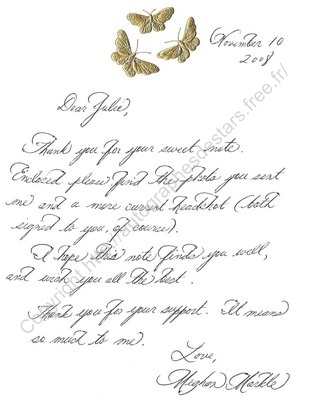 November 10
2008
Dear Julie,
Thank you for your sweet note.
Enclosed please find the photo you sent
me and a more current headshot (both
signed to you, of course).
I hope this note finds you well,
and wish you all the best.
Thank you for your support. It means
so much to me.
Love,
Meghan Markle
Copyright http://autographesdestars.free.fr/